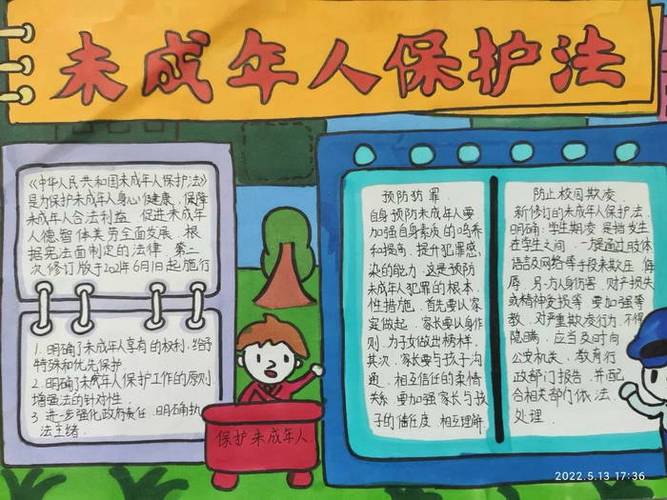 未成年人保护法
《中华人民共和国未成年人保护法》
是为保护未成年人身心健康，保障
未成年人合法利益 促进未成年
人德智体美劳全面发展，根
据宪法面制定的法律，第二
次修订版于2021年6月1日起施行
1. 明确了未成年人享有的权利，给予
特殊和优先保护
2. 明确了未成年人保护工作的原则
增强法的针对性
3. 进一步强化政府责任，明确执
法主绪
保护未成年人
预防犯罪
自身预防未成年人要
加强自身素质的
和提高，提升犯罪感
染的能力，这是预防
未成年人犯罪的根本
性措施，首先要从家
定做起，家长要以身作
则，为子女做出榜样，
其次，家长要与孩子沟
通，相互信任的柔情
关系 要加强家长与孩
子的信任度，相互理解
防止校园欺凌
新修订的未成年人保护法，
明确：学生期凌 是指发生
在学生之间，一施通过肢体
语言及网络等手段未欺压、侮
辱，另一方人身伤害，对产损失
或精神
要加强等
教，对严重欺凌行为，不得
隐瞒，应当及时向
公安机关、教育行
政部门报告，并配
合相关部门依法
处理．
2022.5.13 17:36